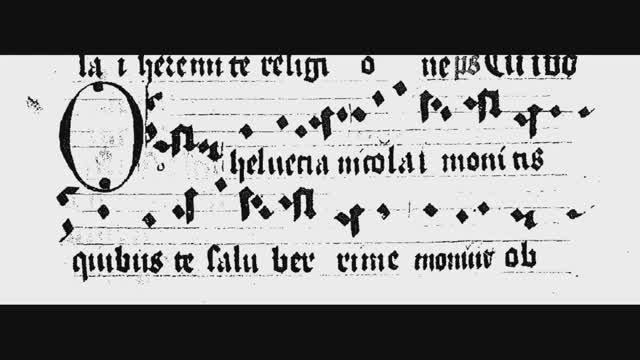 la i heremite religi o ne ps
O helvecia nicolai monitis
quibus te salu ber rime monuit ob